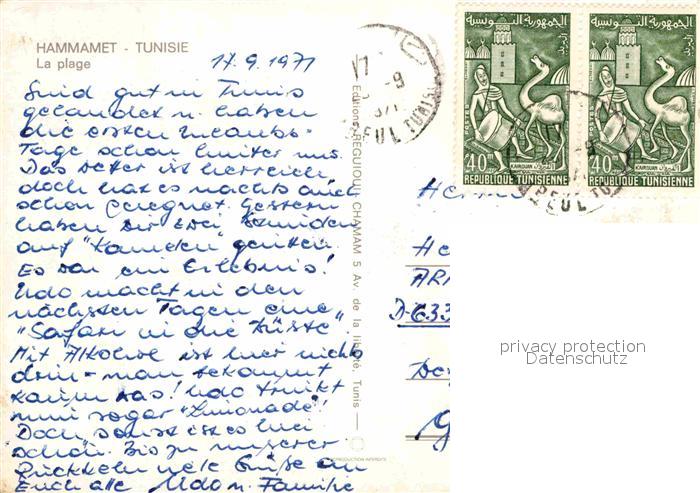 HAMMAMET - TUNISIE
La plage
17.9.1971
Sind gut in Tunis
gelandet u. haben
die ersten Urlaubs-
Tage schon hinter uns.
Das Wetter ist herrlich
doch hat es nachts auch
schon geregnet. Gestern
haben wir zwei Stunden
auf "Kamelen" geritten.
Es war ein Erlebnis!
Udo macht in den
nächsten Tagen eine
"Safari in die Wüste".
Mit Alkohol ist hier nichts
drin - man bekommt
kaum was! Udo trinkt
nun sogar "Limonade"!
Doch sonst ist es hier
schön. Bis zu unserer
Rückkehr viele Grüße an
Euch alle Udo u. Familie
Editions REGUIOUI CHAMAM 5 Av. de la liberté, Tunis
REPRODUCTION INTERDITE
الجمهورية التونسية
البريد
40
KAIROUAN
القيروان
REPUBLIQUE TUNISIENNE
الجمهورية التونسية
البريد
40
KAIROUAN
القيروان
REPUBLIQUE TUNISIENNE
17
-9
TUNISIE
He
AR
D-633
privacy protection
Datenschutz